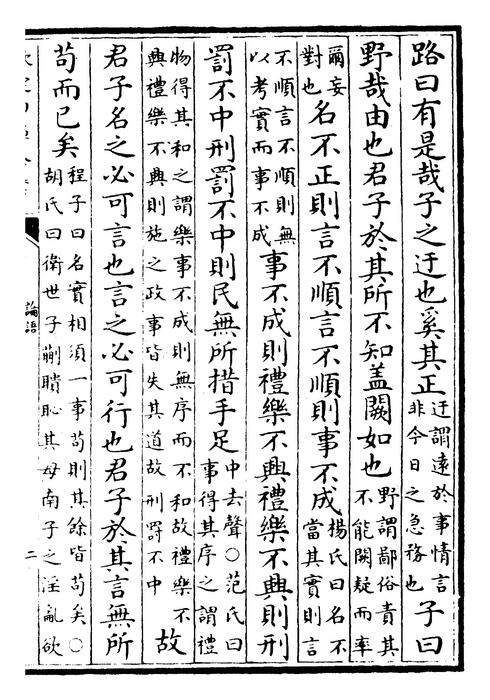 路曰有是哉子之迂也奚其正迂謂遠於事情言非今日之急務也子曰
野哉由也君子於其所不知蓋闕如也野謂鄙俗責其不能闕疑而率
爾妄對也名不正則言不順言不順則事不成楊氏曰名不當其實則言
不順言不順則無以考實而事不成事不成則禮樂不興禮樂不興則刑
罰不中刑罰不中則民無所措手足中去聲○范氏曰事得其序之謂禮
物得其和之謂樂事不成則無序而不和故禮樂不興禮樂不興則施之政事皆失其道故刑罰不中故
君子名之必可言也言之必可行也君子於其言無所
苟而已矣程子曰名實相須一事苟則其餘皆苟矣○胡氏曰衛世子蒯聵恥其母南子之淫亂欲
論語
二